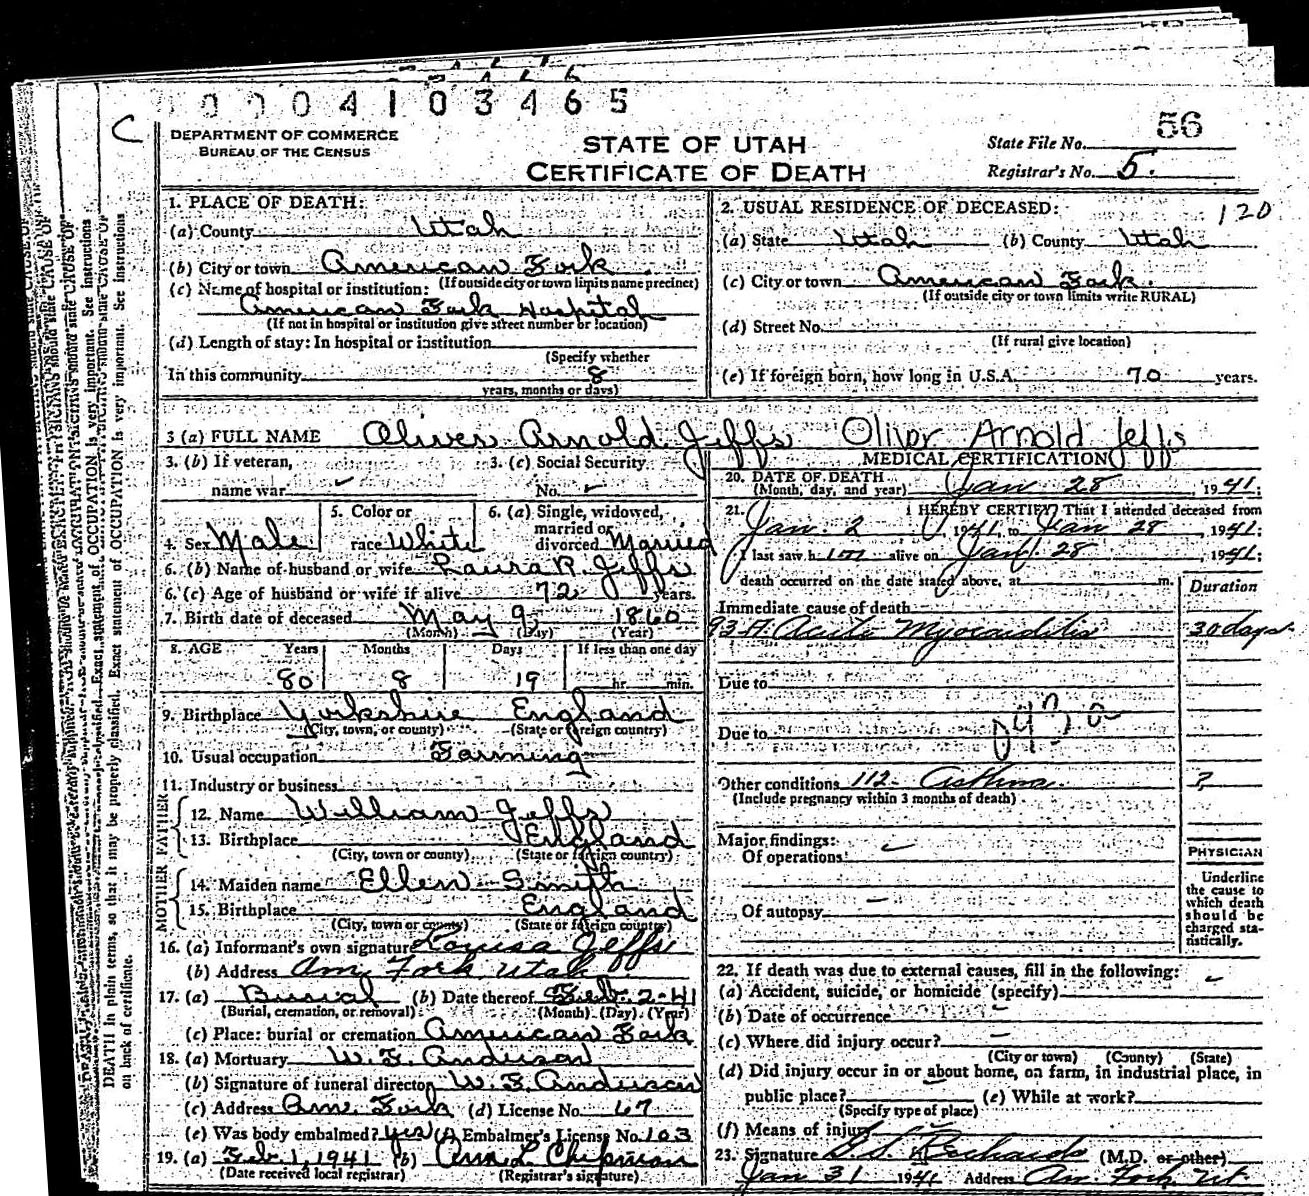 0 0 0 4 1 0 3 4 6 5
C
56
DEPARTMENT OF COMMERCE
BUREAU OF THE CENSUS
STATE OF UTAH
CERTIFICATE OF DEATH
State File No.
Registrar's No. 5.
1. PLACE OF DEATH:
(a) County Utah
(b) City or town American Fork
(If outside city or town limits name precinct)
(c) Name of hospital or institution:
American Fork Hospital
(If not in hospital or institution give street number or location)
(d) Length of stay: In hospital or institution
(Specify whether
In this community 8
years, months or days)
2. USUAL RESIDENCE OF DECEASED: 120
(a) State Utah (b) County Utah
(c) City or town American Fork.
(If outside city or town limits write RURAL)
(d) Street No.
(If rural give location)
(e) If foreign born, how long in U.S.A. 70 years.
3 (a) FULL NAME Oliver Arnold Jeffs Oliver Arnold Jeffs
3. (b) If veteran,
name war
3. (c) Social Security
No.
4. Sex Male
5. Color or
race White
6. (a) Single, widowed,
married or
divorced Married
6. (b) Name of husband or wife Laura R. Jeffs
6. (c) Age of husband or wife if alive 72 years.
7. Birth date of deceased May 9 1860
(Month) (Day) (Year)
8. AGE Years Months Days If less than one day
80 8 19 hr. min.
9. Birthplace Yorkshire England
(City, town, or county) (State or foreign country)
10. Usual occupation Farming
11. Industry or business
FATHER
12. Name William Jeffs
13. Birthplace England
(City, town or county) (State or foreign country)
MOTHER
14. Maiden name Ellen Smith
15. Birthplace England
(City, town or county) (State or foreign country)
16. (a) Informant's own signature Louisa Jeffs
(b) Address Am. Fork Utah
17. (a) Burial (b) Date thereof Feb. 2-41
(Burial, cremation, or removal) (Month) (Day) (Year)
(c) Place: burial or cremation American Fork
18. (a) Mortuary W. F. Anderson
(b) Signature of funeral director W. F. Anderson
(c) Address Am. Fork (d) License No. 67
(e) Was body embalmed? yes (f) Embalmer's License No. 103
19. (a) Feb 1, 1941 (b) Ann L. Chipman
(Date received local registrar) (Registrar's signature)
MEDICAL CERTIFICATION
20. DATE OF DEATH
(Month, day, and year) Jan 28, 1941.
21. I HEREBY CERTIFY That I attended deceased from
Jan. 2, 1941, to Jan 28, 1941;
I last saw him alive on Jan. 28, 1941;
death occurred on the date stated above, at m.
Duration
Immediate cause of death
93 A. Acute Myocarditis 30 days
Due to
Due to
Other conditions 112. Asthma. ?
(Include pregnancy within 3 months of death)
Major findings:
Of operations
Of autopsy
PHYSICIAN
Underline
the cause to
which death
should be
charged sta-
tistically.
22. If death was due to external causes, fill in the following:
(a) Accident, suicide, or homicide (specify)
(b) Date of occurrence
(c) Where did injury occur?
(City or town) (County) (State)
(d) Did injury occur in or about home, on farm, in industrial place, in
public place? (e) While at work?
(Specify type of place)
(f) Means of injury
23. Signature Richards (M.D. or other)
Jan 31 1941 Address Am. Fork Ut.
OCCUPATION is very important. See instructions
Exact statement of OCCUPATION is very important. See instructions
DEATH in plain terms, so that it may be properly classified.
on back of certificate.